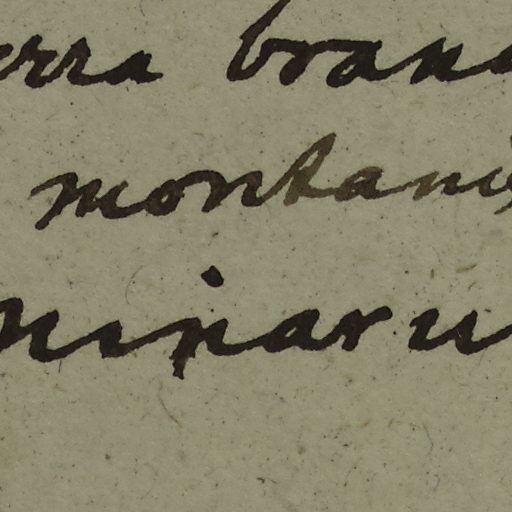 erra bran
montani
ninaru